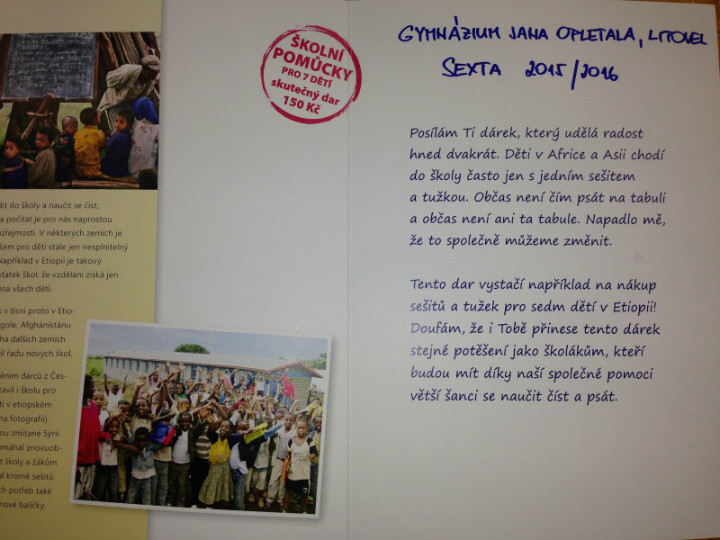 dit do školy a naučit se číst,
a počítat je pro nás naprostou
V některých zemích je
šem pro děti stále jen nesplnitelný
Například v Etiopii je takový
statek škol, že vzdělání získá jen
ina všech dětí.
k v tísni proto v Etio-
gole, Afghánistánu
ha dalších zemích
il řadu nových škol.
ěním dárců z Čes-
tavil i školu pro
ti v etiopském
na fotografii).
ou zmítané Sýrii
omáhal znovuob-
t školy a žákům
al kromě sešitů
ch potřeb také
nové balíčky.
ŠKOLNÍ
POMŮCKY
PRO 7 DĚTÍ
skutečný dar
150 Kč
GYMNÁZIUM JANA OPLETALA, LITOVEL
SEXTA 2015/2016
Posílám Ti dárek, který udělá radost
hned dvakrát. Děti v Africe a Asii chodí
do školy často jen s jedním sešitem
a tužkou. Občas není čím psát na tabuli
a občas není ani ta tabule. Napadlo mě,
že to společně můžeme změnit.
Tento dar vystačí například na nákup
sešitů a tužek pro sedm dětí v Etiopii!
Doufám, že i Tobě přinese tento dárek
stejné potěšení jako školákům, kteří
budou mít díky naší společné pomoci
větší šanci se naučit číst a psát.